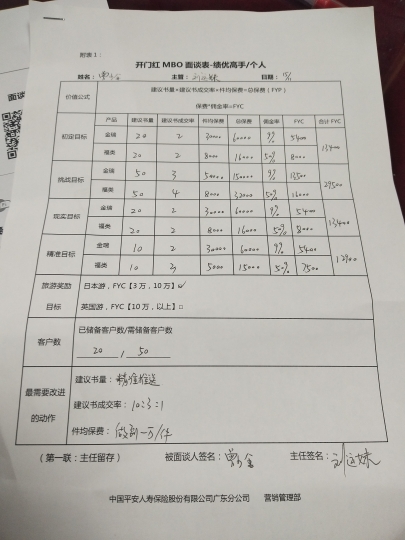 附表1：
开门红 MBO 面谈表-绩优高手/个人
姓名： 主管：刘运妹 日期：
价值公式 建议书量*建议书成交率*件均保费=总保费（FYP）
保费*佣金率=FYC
产品 建议书量 建议书成交率 件均保费 总保费 佣金率 FYC 合计 FYC
初定目标 金瑞 20 2 30000 60000 9% 5400 13400
福类 20 2 8000 16000 50% 8000
挑战目标 金瑞 50 3 50000 150000 9% 13500 29500
福类 50 4 8000 32000 50% 16000
现实目标 金瑞 20 2 30000 60000 9% 5400 13400
福类 20 2 8000 16000 50% 8000
精准目标 金瑞 10 2 30000 60000 9% 5400 12900
福类 10 3 5000 15000 50% 7500
旅游奖励 日本游，FYC【3万，10万】☑
目标 英国游，FYC【10万，以上】□
客户数 已储备客户数/需储备客户数
20 / 50
最需要改进的动作 建议书量：精准挑选
建议书成交率：10:3:1
件均保费：做到一万/件
（第一联：主任留存） 被面谈人签名： 主任签名：刘运妹
中国平安人寿保险股份有限公司广东分公司 营销管理部
面谈